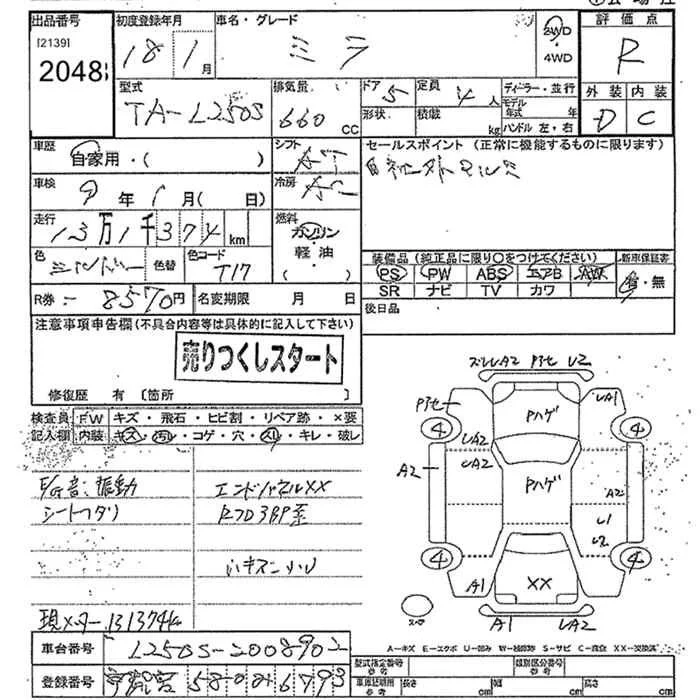 出品番号 初度登録年月 車名・グレード 評価点
[2139]
2048
18 1月 ミラ 2WD ・ 4WD R
型式 排気量 ドア 定員 ディーラー・並行 外装 内装
TA-L250S 660cc 5 4人 D C
形状 積載 kg モデル年式 年 ハンドル 左・右
車歴 自家用・( ) シフト AT セールスポイント (正常に機能するものに限ります)
車検 年 月( 日) 冷房 AC
走行 13万1千374km 燃料 ガソリン 軽油 ・( )
色 シルバー 色替 色コード T17 装備品 (純正品に限り○をつけてください) 新車保証書
PS PW ABS エアB AW 有・無
SR ナビ TV カワ
R券 8570円 名変期限 月 日 後日品
注意事項申告欄(不具合内容等は具体的に記入して下さい)
売りつくしスタート
修復歴 有 [箇所 ]
検査員記入欄 FW キズ・飛石・ヒビ割・リペア跡・×要
内装 キズ・汚レ・コゲ・穴・スレ・キレ・破レ
E/G音、振動 エンドパネルXX
シートヘタリ
現メーター 131374k
車台番号 L250S-2008902
登録番号 58-
型式指定番号 参考 類別区分番号 参考
車庫証明用 参考 長さ cm 幅 cm 高さ cm
ズレUA2 アトセ U2
アトセ UA1
Pハゲ
4 4
UA2
UA2
A2 Pハゲ A2
U1
U2
4 4
A1 XX A1
A1 UA2
A-キズ E-エクボ U-凹み W-補修跡 S-サビ C-腐食 XX-交換済